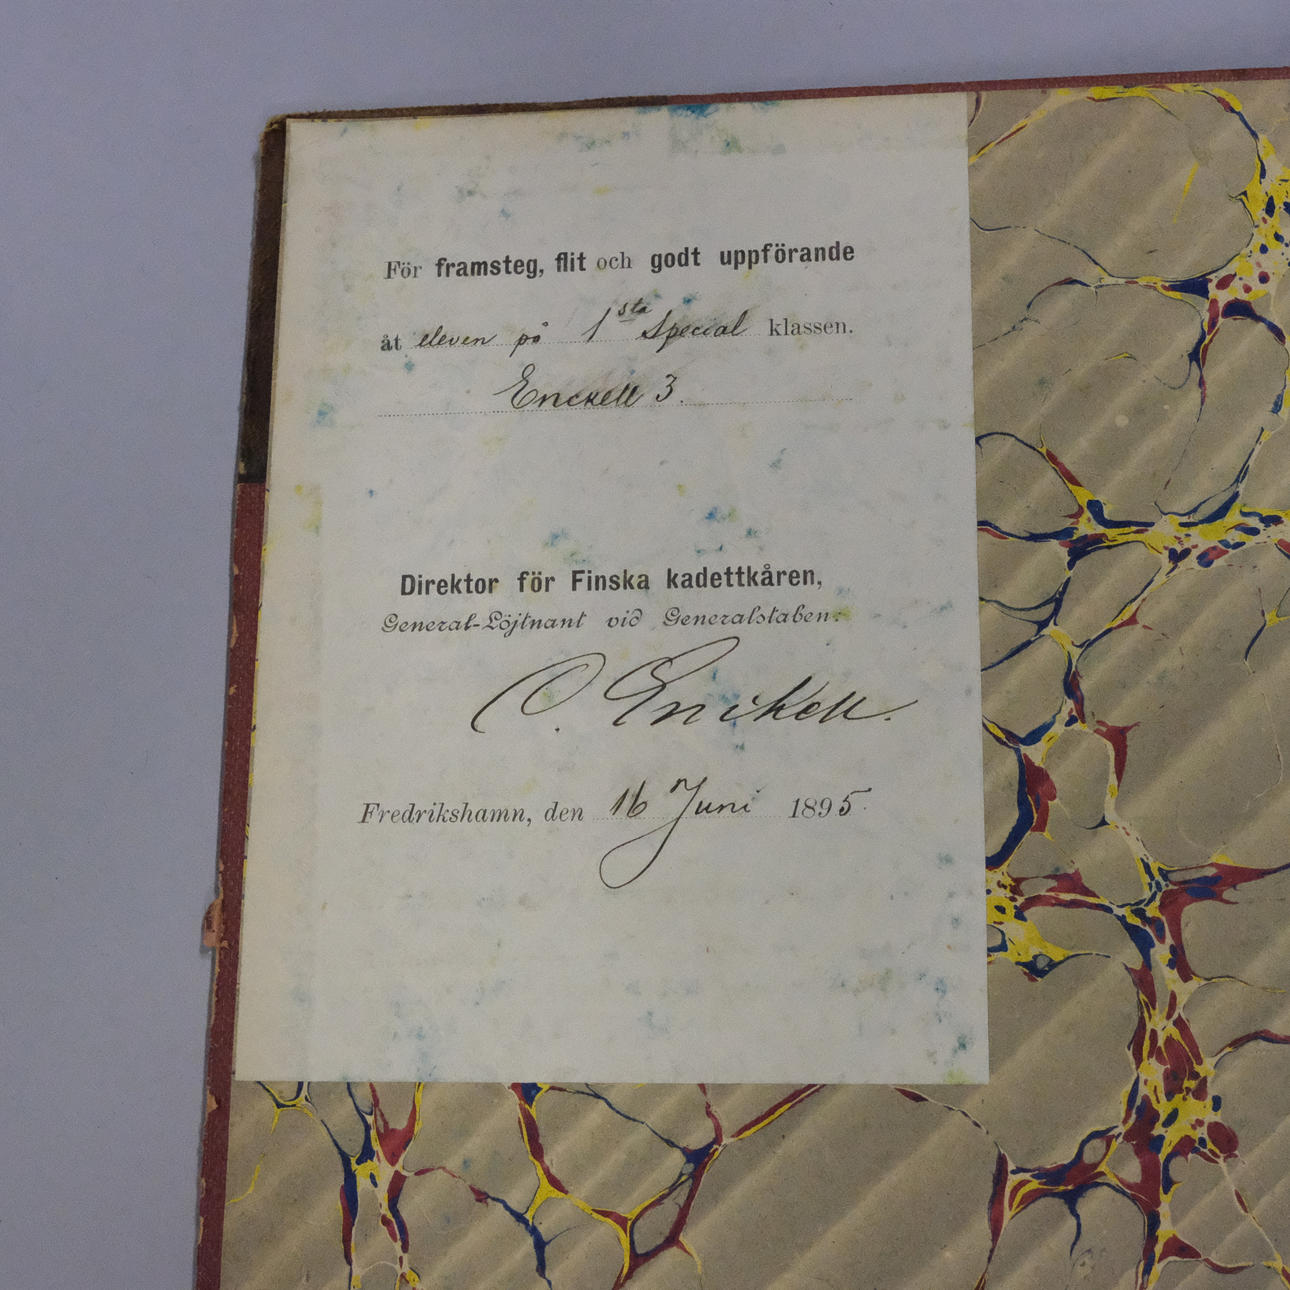 För framsteg, flit och godt uppförande
åt eleven på 1sta Special klassen.
Enckell 3.
Direktor för Finska kadettkåren,
General-Löjtnant vid Generalstaben:
C. Enckell.
Fredrikshamn, den 16 Juni 1895.